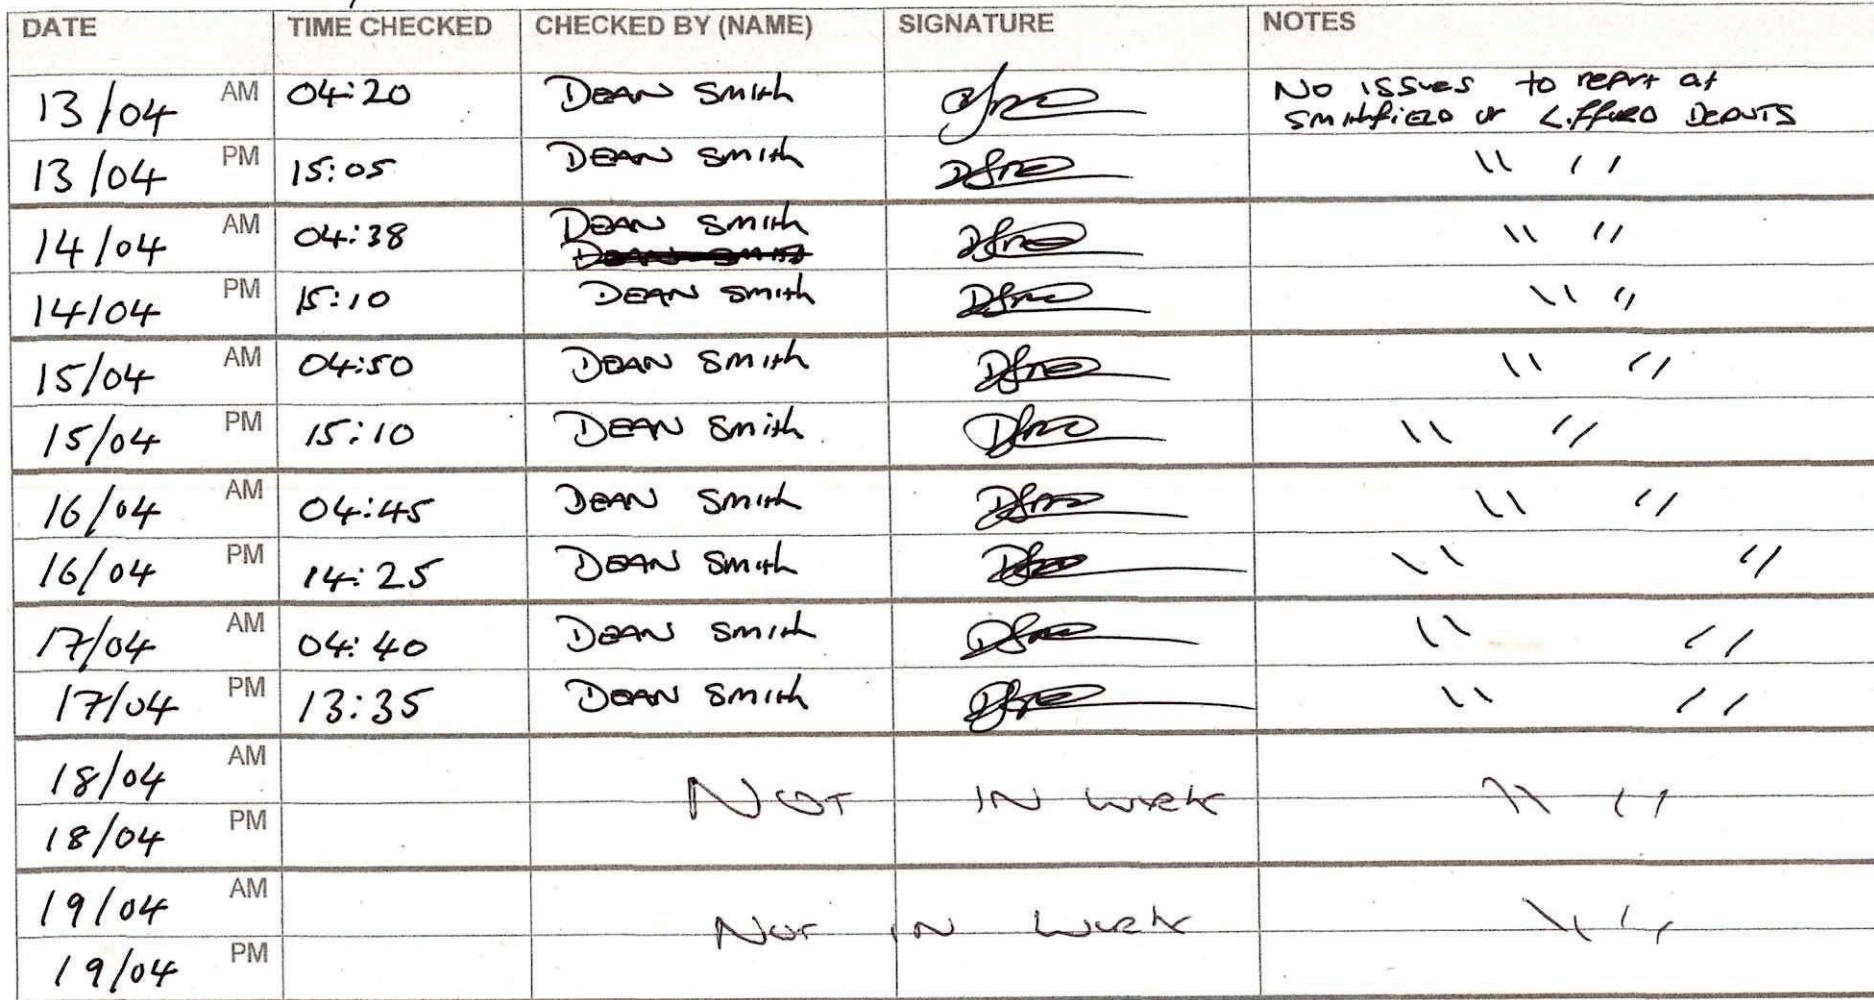 DATE TIME CHECKED CHECKED BY (NAME) SIGNATURE NOTES
13/04 AM 04:20 DEAN Smith No issues to report at
Smithfield or Lifford Depots
13/04 PM 15:05 DEAN Smith \\ //
14/04 AM 04:38 DEAN Smith \\ //
14/04 PM 15:10 DEAN Smith \\ //
15/04 AM 04:50 DEAN Smith \\ //
15/04 PM 15:10 DEAN Smith \\ //
16/04 AM 04:45 DEAN Smith \\ //
16/04 PM 14:25 DEAN Smith \\ //
17/04 AM 04:40 DEAN Smith \\ //
17/04 PM 13:35 DEAN Smith \\ //
18/04 AM
NOT IN WORK \\ //
18/04 PM
19/04 AM
NOT IN WORK \\ //
19/04 PM